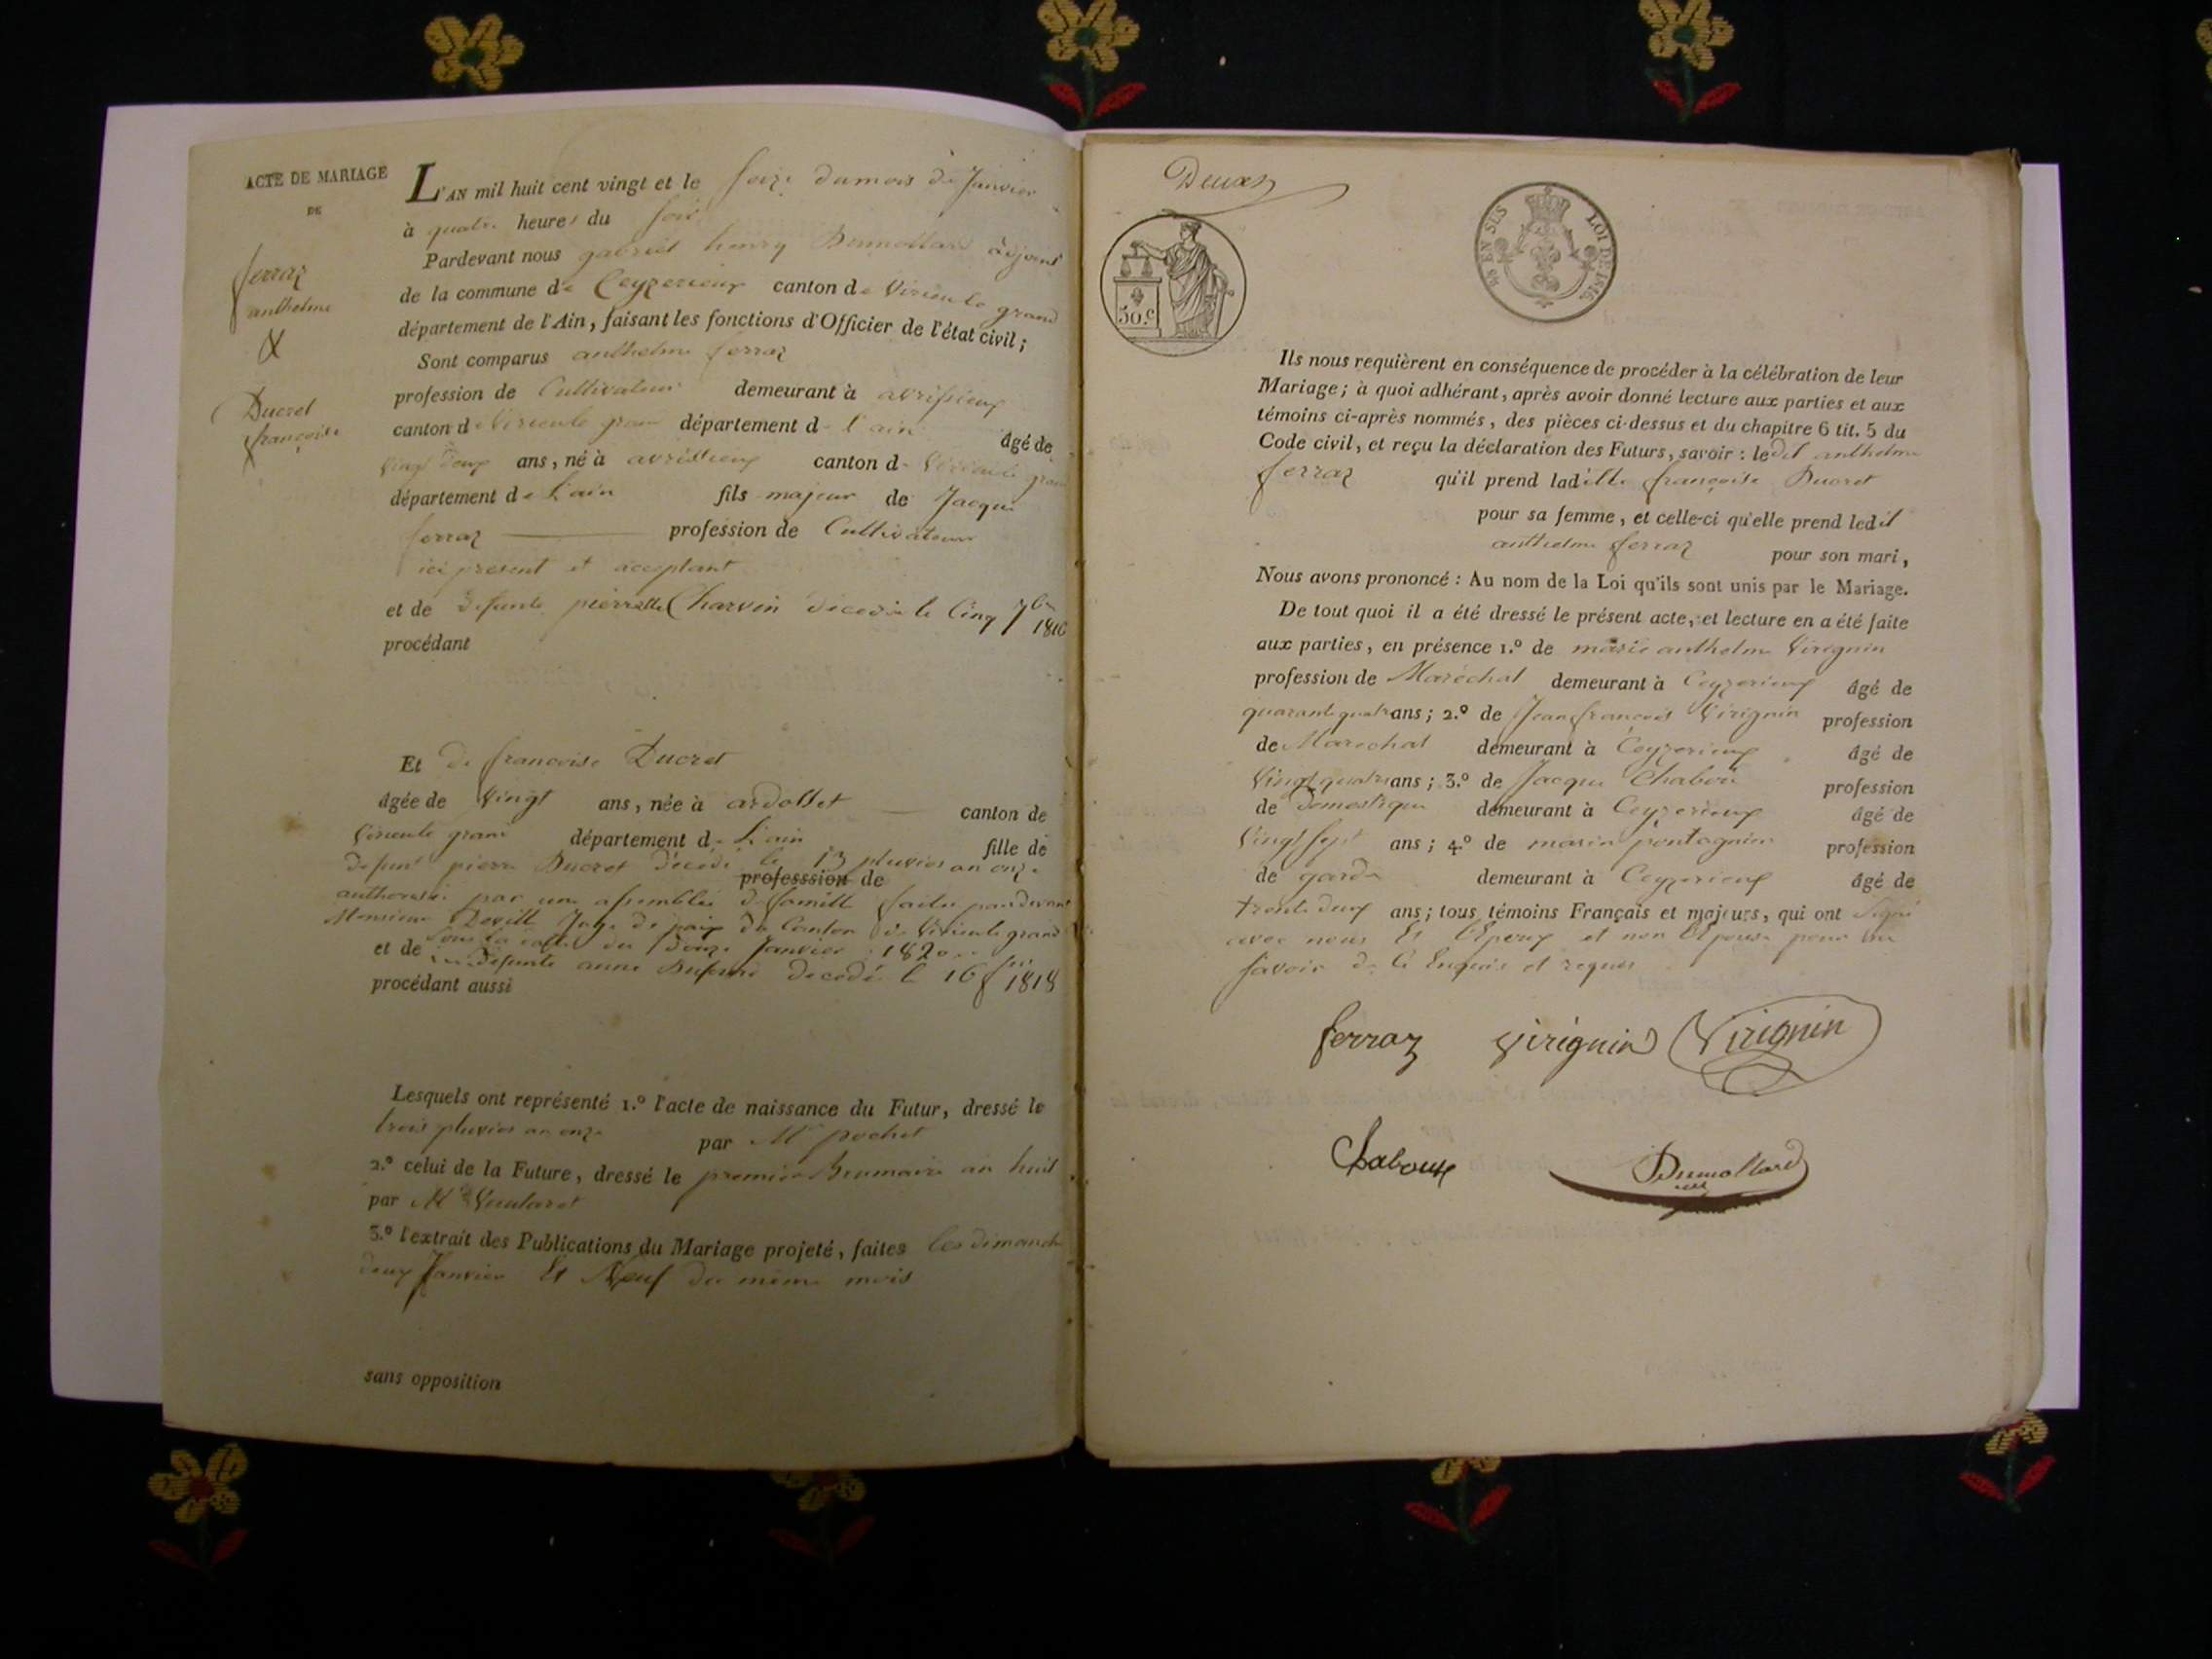 ACTE DE MARIAGE
DE
ferraz
anthelme
&
Ducret
françoise
L'AN mil huit cent vingt et le seize du mois de Janvier
à quatre heures du soir
Pardevant nous gabriel henry Dumollard adjoint
de la commune de Ceyzerieux canton de Virieu le grand
département de l'Ain, faisant les fonctions d'Officier de l'état civil;
Sont comparus anthelme ferraz
profession de Cultivateur demeurant à avrissieux
canton de Virieu le grand département de l'ain âgé de
vingt deux ans, né à avrissieux canton de Virieu le grand
département de L'ain fils majeur de Jacque
ferraz profession de Cultivateur
ici present et acceptant
et de defunte pierrette Charvin décédée le Cinq 7bre 1816
procédant
Et de francoise Ducret
âgée de Vingt ans, née à ardosset canton de
Virieu le grand département de L'ain fille de
defunt pierre Ducret décédé le 13 pluvios an onze
professsion de
authorisée par une assemblée de famille faite pardevant
Monsieur Devill Juge de paix du Canton de Virieu le grand
sous la date du douze Janvier 1820
et de defunte anne décédé le 16 1818
procédant aussi
Lesquels ont représenté 1.º l'acte de naissance du Futur, dressé le
trois pluvios an onze par Mr pochet
2.º celui de la Future, dressé le premier Brumaire an huit
par Mr
3.º l'extrait des Publications du Mariage projeté, faites les dimanche
deux Janvier Et Neuf du même mois
sans opposition
Deux
30.c
EN SUS LOI DE 1816
Ils nous requièrent en conséquence de procéder à la célébration de leur
Mariage; à quoi adhérant, après avoir donné lecture aux parties et aux
témoins ci-après nommés, des pièces ci-dessus et du chapitre 6 tit. 5 du
Code civil, et reçu la déclaration des Futurs, savoir: ledit anthelme
ferraz qu'il prend ladite françoise Ducret
pour sa femme, et celle-ci qu'elle prend ledit
anthelme ferraz pour son mari,
Nous avons prononcé: Au nom de la Loi qu'ils sont unis par le Mariage.
De tout quoi il a été dressé le présent acte, et lecture en a été faite
aux parties, en présence 1.º de marie anthelme Virignin
profession de Maréchal demeurant à Ceyzerieux âgé de
quarante quatre ans; 2.º de Jean francois Virignin profession
de Marechal demeurant à Ceyzerieux âgé de
Vingt quatre ans; 3.º de Jacque Chaboux profession
de Domestique demeurant à Ceyzerieux âgé de
Vingt Sept ans; 4º de marin pontagnin profession
de garde demeurant à Ceyzerieux âgé de
trente deux ans; tous témoins Français et majeurs, qui ont Signé
avec nous Et L'Epoux et non L'Epouse pour ne
savoir de ce Enquis et requis
ferraz Virignin Virignin
Chaboux Dumollard